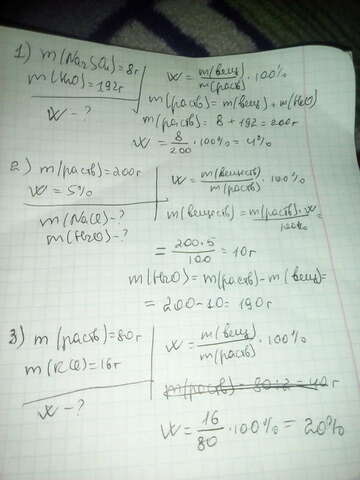 1) m(Na₂SO₄)=8г
m(H₂O)=192г
W - ?
W = m(вещ)/m(раств) · 100%
m(раств) = m(вещ) + m(H₂O)
m(раств) = 8 + 192 = 200г
W = 8/200 · 100% = 4%
2) m(раств)=200г
W = 5%
m(NaCl) - ?
m(H2O) - ?
W = m(веществ)/m(раств) · 100%
m(веществ) = m(раств)·W/100% =
= 200·5/100 = 10г
m(H2O) = m(раств) - m(вещ) =
= 200-10 = 190г
3) m(раств)=80г
m(KCl)=16г
W - ?
W = m(вещ)/m(раств) · 100%
m(раств) = 80:2 = 40г
W = 16/80 · 100% = 20%